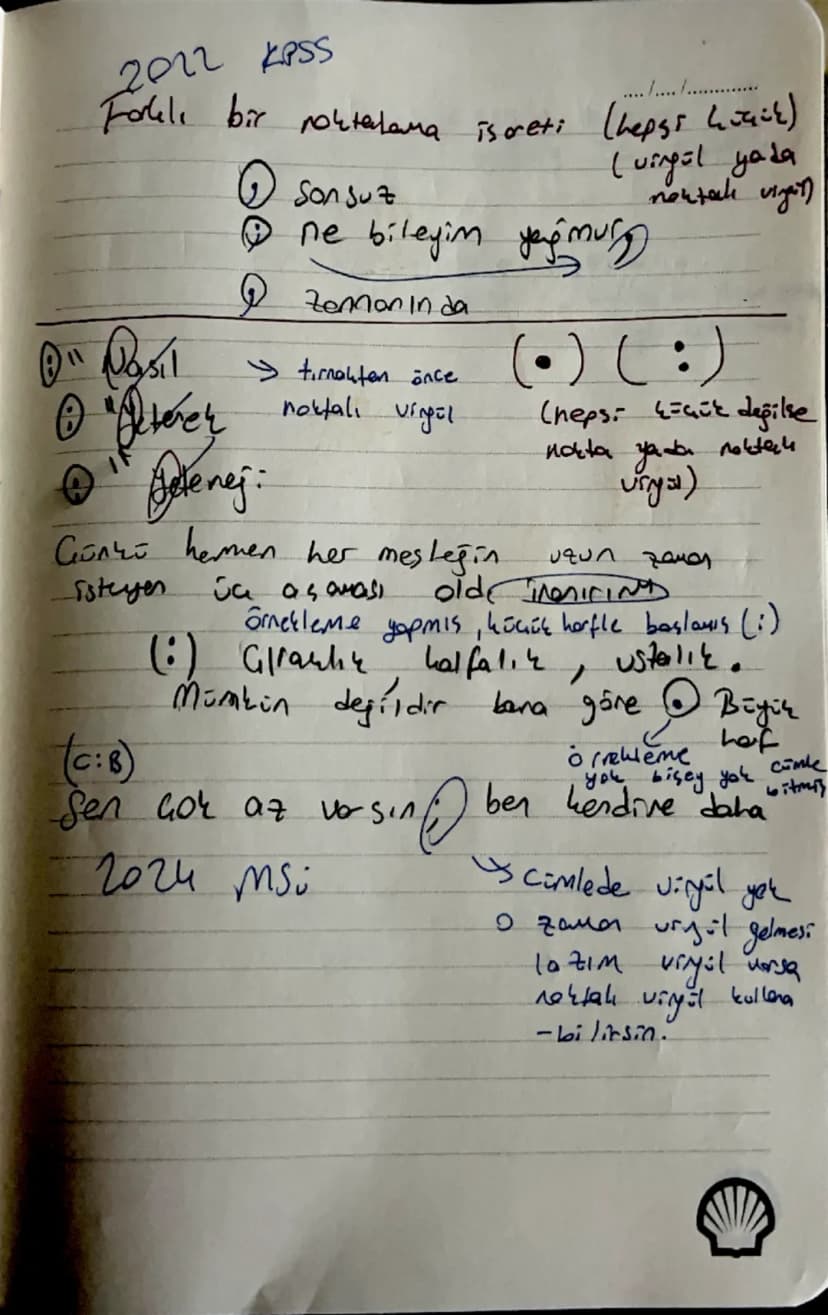 2022 KPSS
..../..../.............
Farklı bir noktalama işareti (hepsi küçük)
(virgül yada
noktalı virgül)
, sonsuz
; ne bileyim yağmur,
, zamanında
:" Nasıl → tırnaktan önce (.) (:)
noktalı virgül
(hepsi küçük değilse
nokta yada noktalı
virgül)
Çünkü hemen her mesleğin uzun zaman
isteyen üç aşaması olde inanırım
örnekleme yapmış, küçük harfle başlamış (:)
(:) Çıraklık, kalfalık, ustalık.
Mümkün değildir bana göre . Büyük
harf
örnekleme
yok bişey yok cümle
bitmiş
(C:B)
Sen çok az varsın ; ben kendine daha
2024 MSÜ
→ Cümlede virgül yok
o zaman virgül gelmesi
lazım virgül varsa
noktalı virgül kullana
-bilirsin.